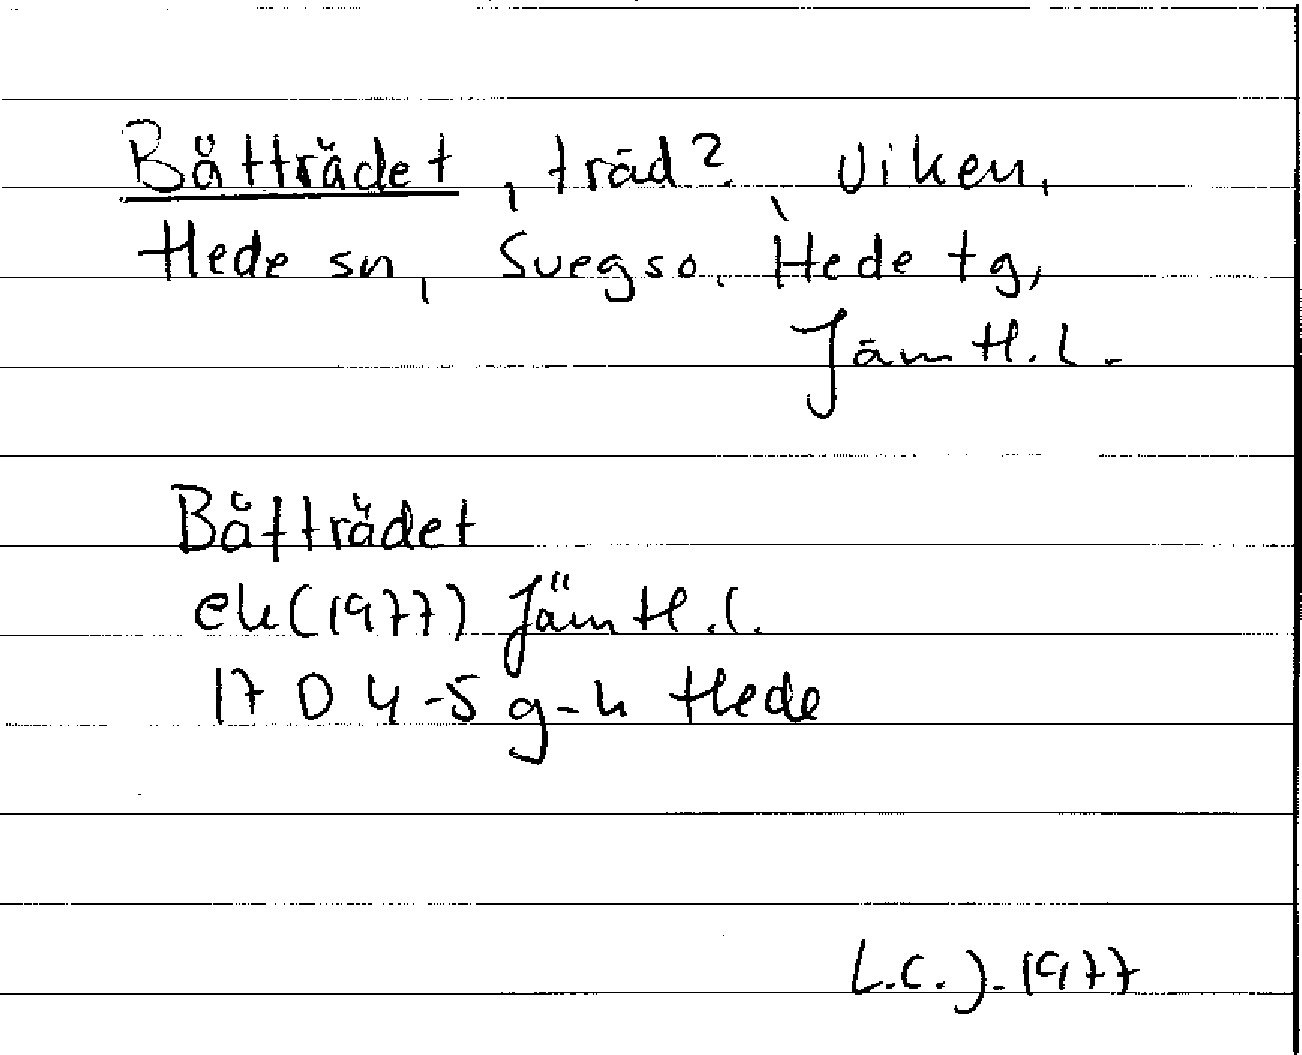 Båtträdet, träd? Viken,
Hede sn, Svegs o. Hede tg,
Jämtl. l.
Båtträdet
ek (1977) Jämtl. l.
17 D 4-5 g-h Hede
L.C.J. 1977